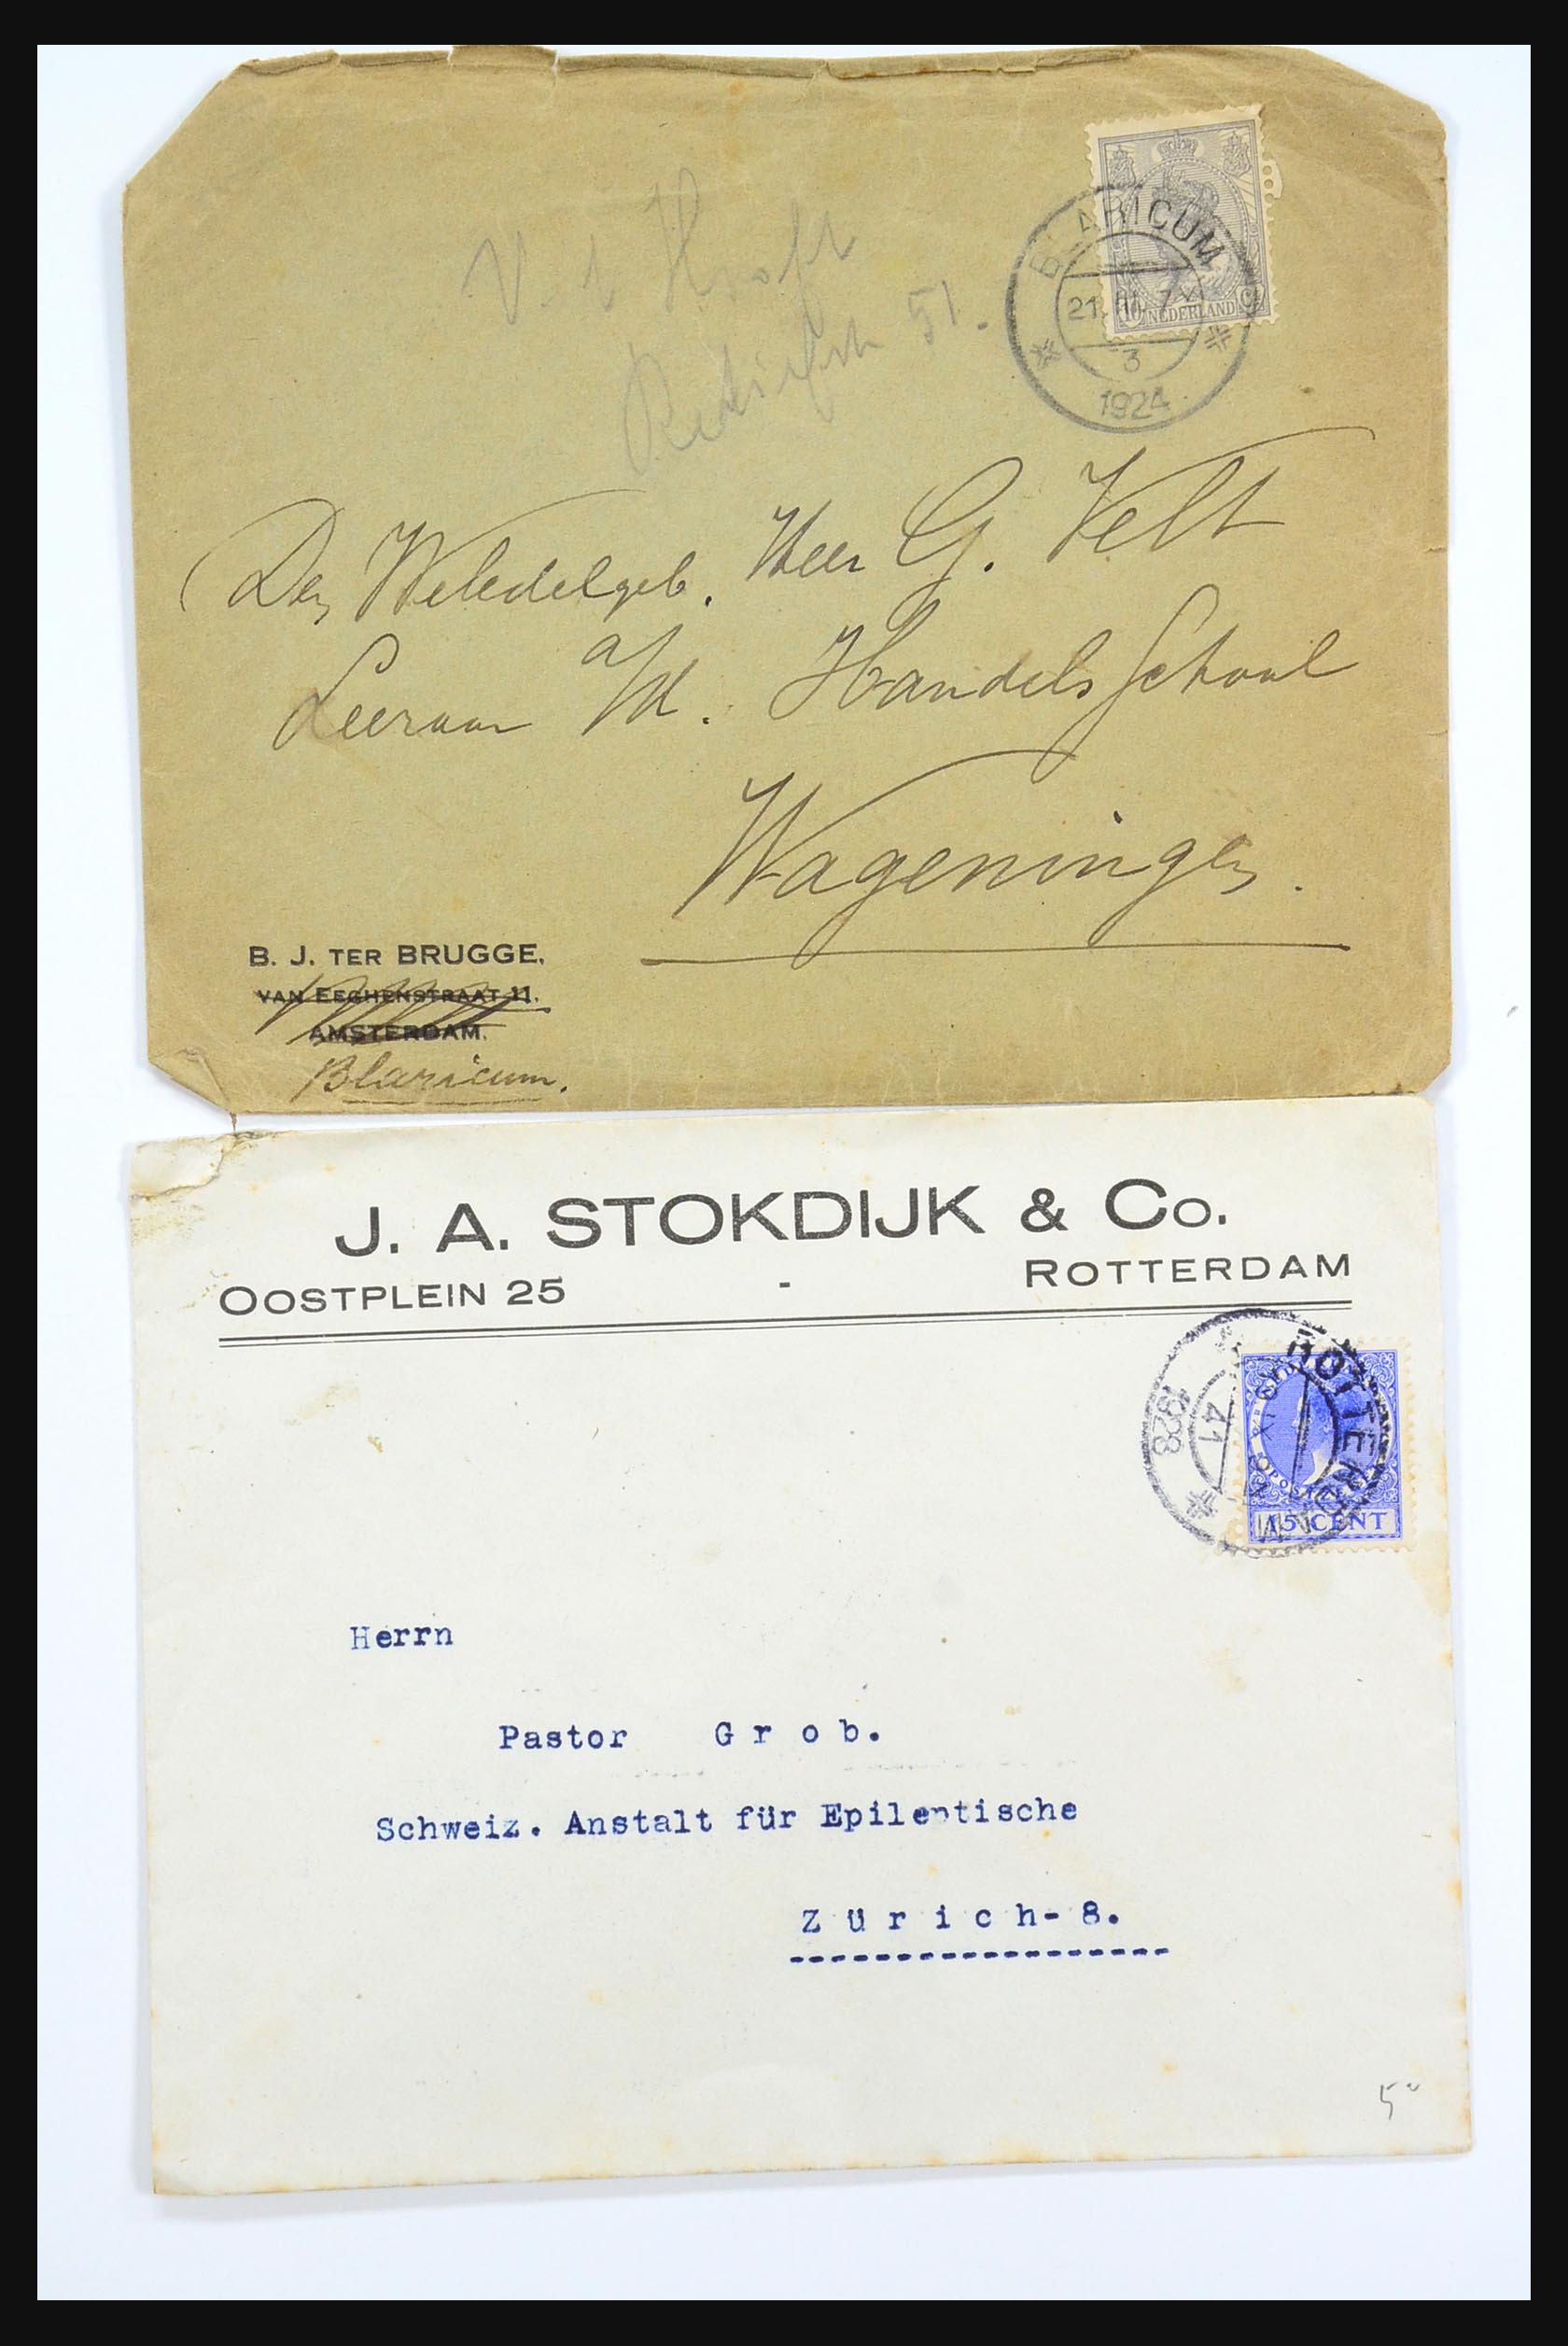 V. t Hooft
51.
BLARICUM
21
3
1924
10 NEDERLAND Ct
Den Weledelgeb. Heer G. Velt
Leeraar a/d. Handelsschool
Wageningen.
B. J. TER BRUGGE,
VAN EEGHENSTRAAT 11.
AMSTERDAM.
Blaricum.
J. A. STOKDIJK & Co.
OOSTPLEIN 25 - ROTTERDAM
ROTTERDAM
41
1928
15 CENT
Herrn
Pastor G r o b.
Schweiz. Anstalt für Epileptische
Z ü r i c h - 8.
5